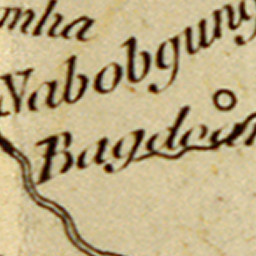 mha
Nabobgung
Bagdean